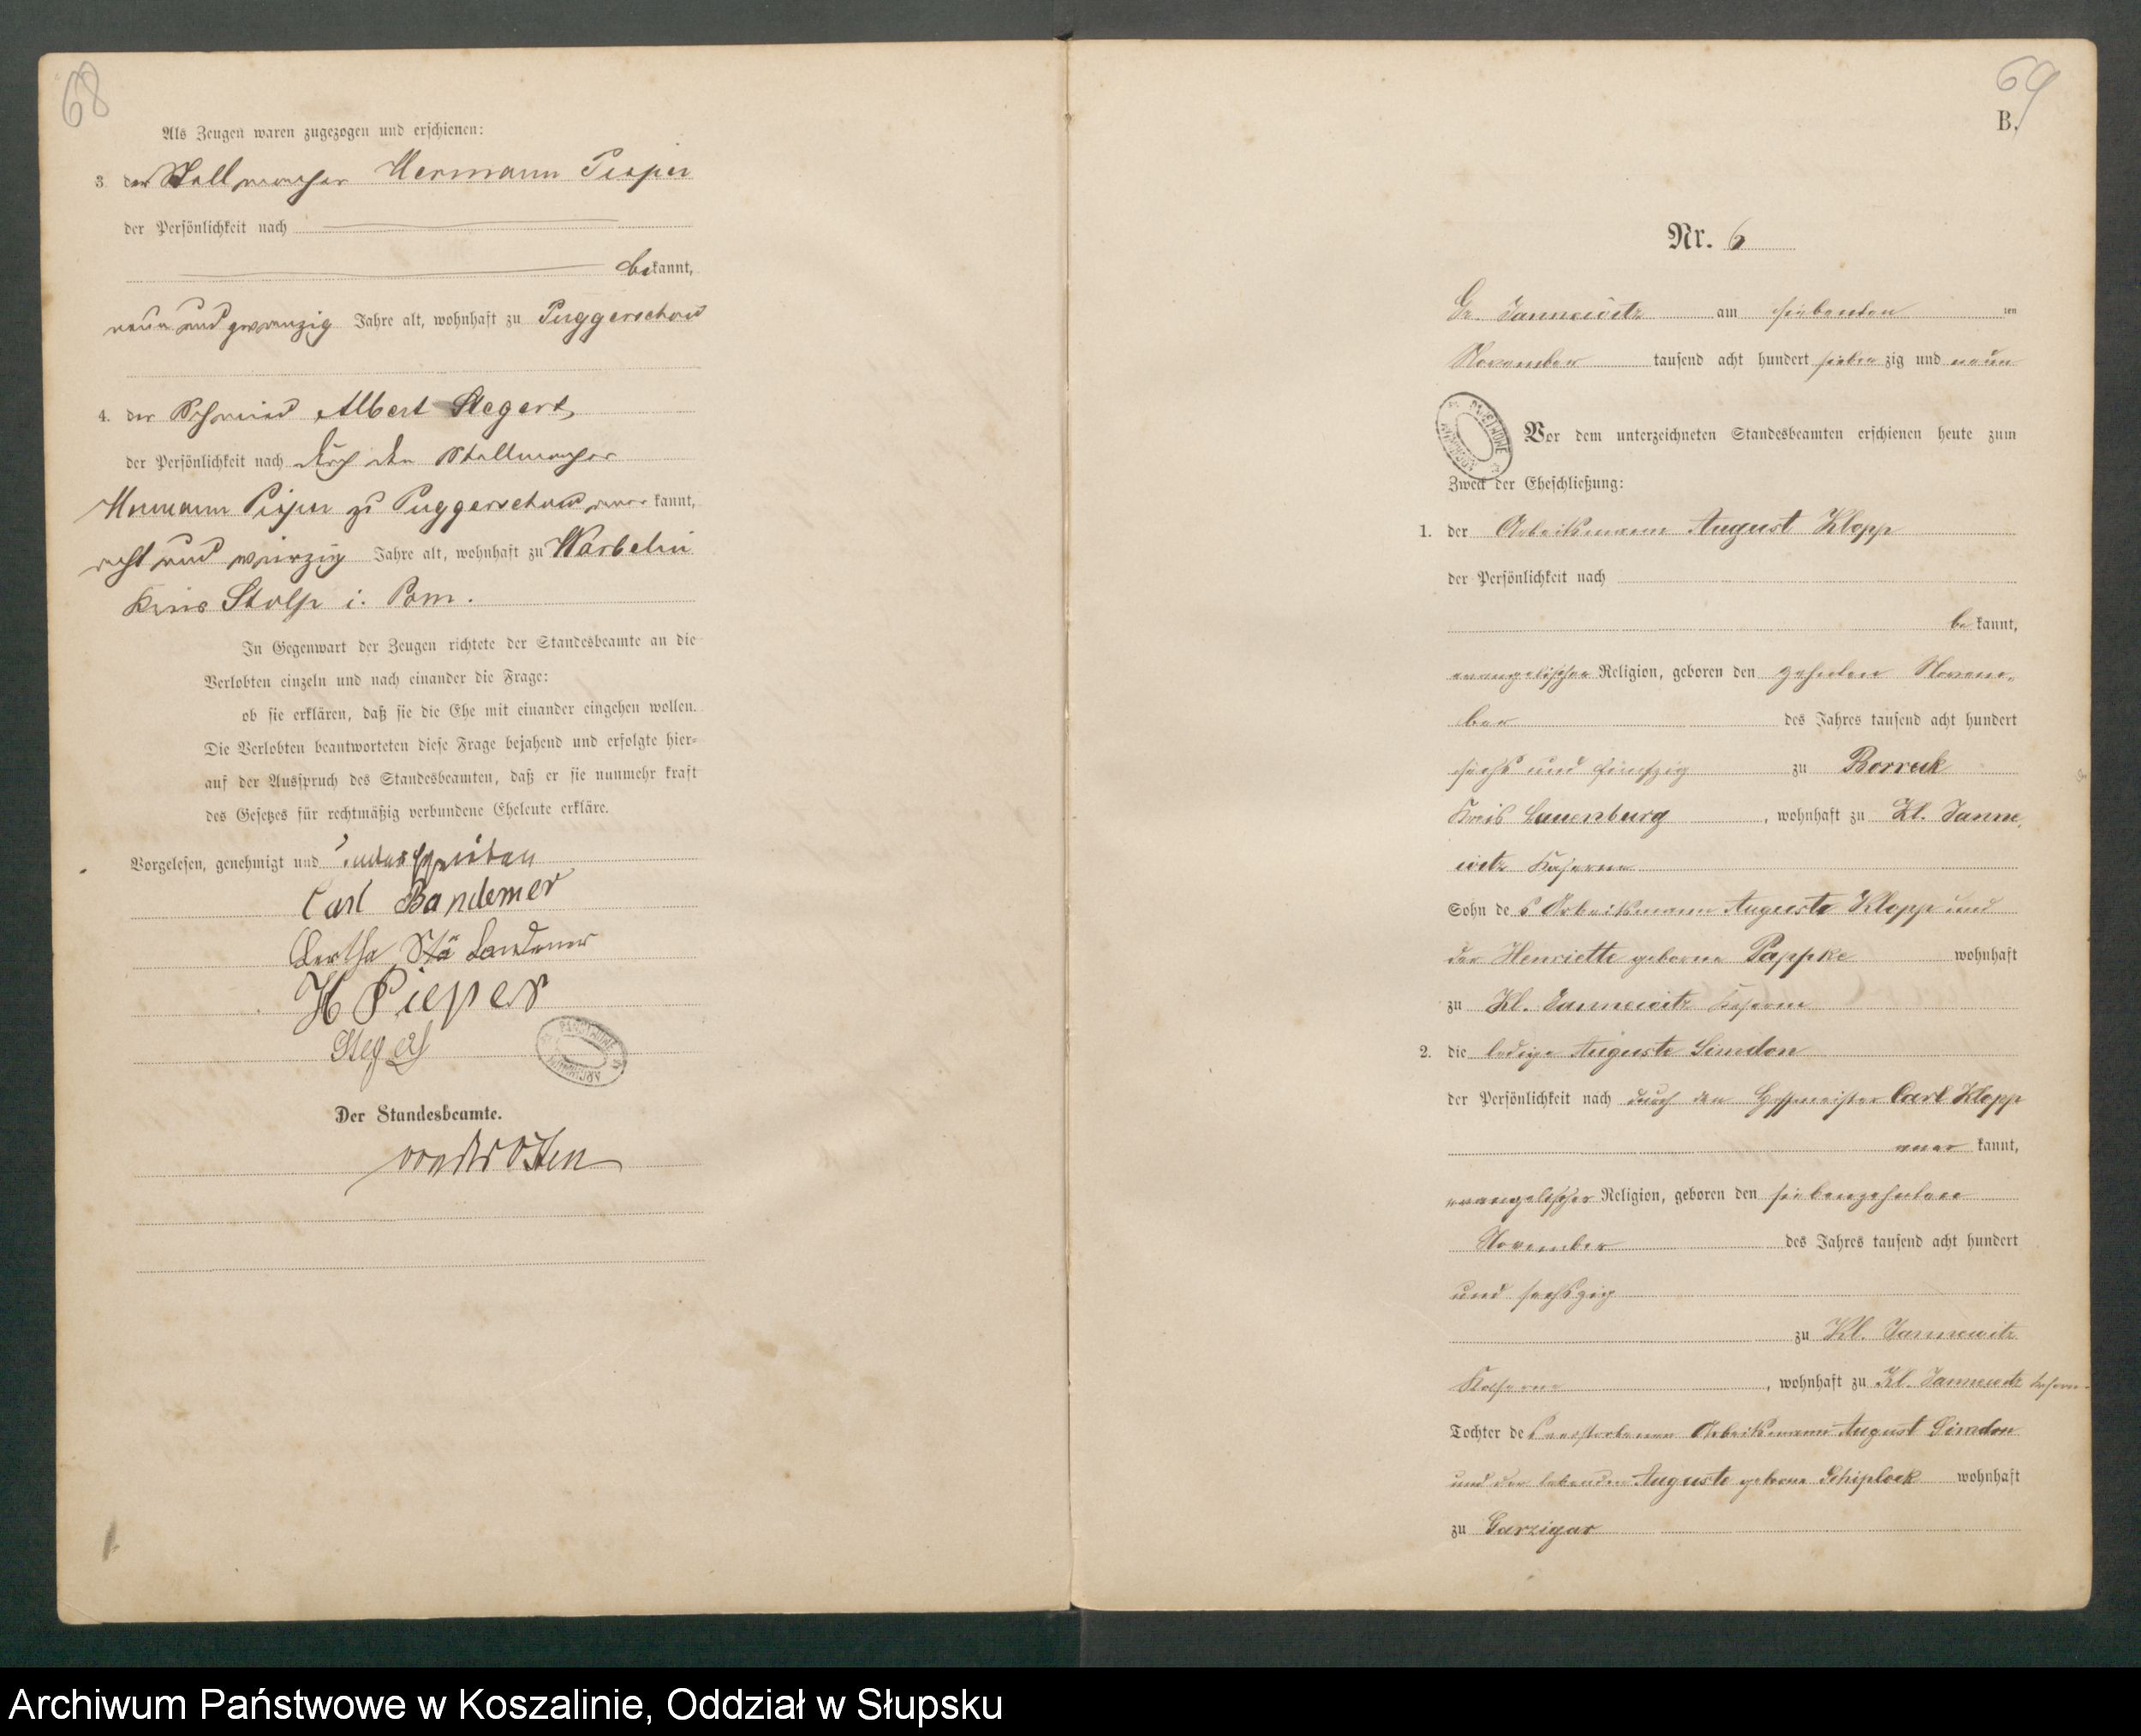 68
Als Zeugen waren zugezogen und erschienen:
3. der Stellmacher Hermann Pieper
der Persönlichkeit nach
bekannt,
neun und zwanzig Jahre alt, wohnhaft zu Puggerschow
4. der Schmied Albert Stegert,
der Persönlichkeit nach durch den Stellmacher
Hermann Pieper zu Puggerschow aner kannt,
acht und vierzig Jahre alt, wohnhaft zu Warbelin
Kreis Stolp i. Pom.
In Gegenwart der Zeugen richtete der Standesbeamte an die
Verlobten einzeln und nach einander die Frage:
ob sie erklären, daß sie die Ehe mit einander eingehen wollen.
Die Verlobten beantworteten diese Frage bejahend und erfolgte hier-
auf der Ausspruch des Standesbeamten, daß er sie nunmehr kraft
des Gesetzes für rechtmäßig verbundene Eheleute erkläre.
Vorgelesen, genehmigt und unterschrieben
Carl Bandemer
Bertha
H Pieper
Stegert
ARCHIWUM PAŃSTWOWE
Der Standesbeamte.
von der Osten
69
B.
Nr. 6
Gr. Jannewitz am siebenten ten
November tausend acht hundert sieben zig und neun
ARCHIWUM PAŃSTWOWE
Vor dem unterzeichneten Standesbeamten erschienen heute zum
Zweck der Eheschließung:
1. der Arbeitsmann August Klopp
der Persönlichkeit nach
be kannt,
evangelischer Religion, geboren den zehnten Novem-
ber des Jahres tausend acht hundert
sechs und fünfzig zu Borreck
Kreis Lauenburg, wohnhaft zu Kl. Janne
witz Kaserne
Sohn des Arbeitsmann Auguste Klopp und
der Henriette geborne Pappke wohnhaft
zu Kl. Jannewitz Kaserne
2. die ledige Auguste Simdon
der Persönlichkeit nach durch den Hofmeister Carl Klopp
aner kannt,
evangelischer Religion, geboren den siebenzehnten
November des Jahres tausend acht hundert
und sechszig
zu Kl. Jannewitz
Kaserne, wohnhaft zu Kl. Jannewitz Kaserne
Tochter des verstorbenen Arbeitsmann August Simdon
und der lebenden Auguste geborne Schiplock wohnhaft
zu Garzigar
Archiwum Państwowe w Koszalinie, Oddział w Słupsku